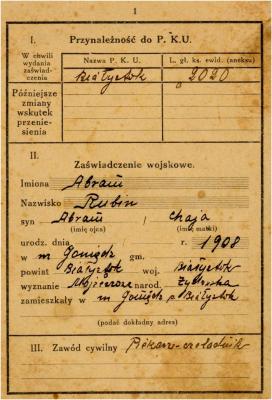 1
I. Przynależność do P. K. U.
W chwili wydania zaświadczenia
Nazwa P. K. U.
L. gł. ks. ewid. (aneksu)
Białystok
2020
Późniejsze zmiany wskutek przeniesienia
II.
Zaświadczenie wojskowe.
Imiona Abram
Nazwisko Rubin
syn Abram / Chaja
(imię ojca) (imię matki)
urodz. dnia r. 1908
w m Goniądz gm.
powiat Białystok woj. Białystok
wyznanie Mojżeszowe narod. Żydowska
zamieszkały w m Goniądz p. Białystok
(podać dokładny adres)
III. Zawód cywilny Piekarz-czeladnik